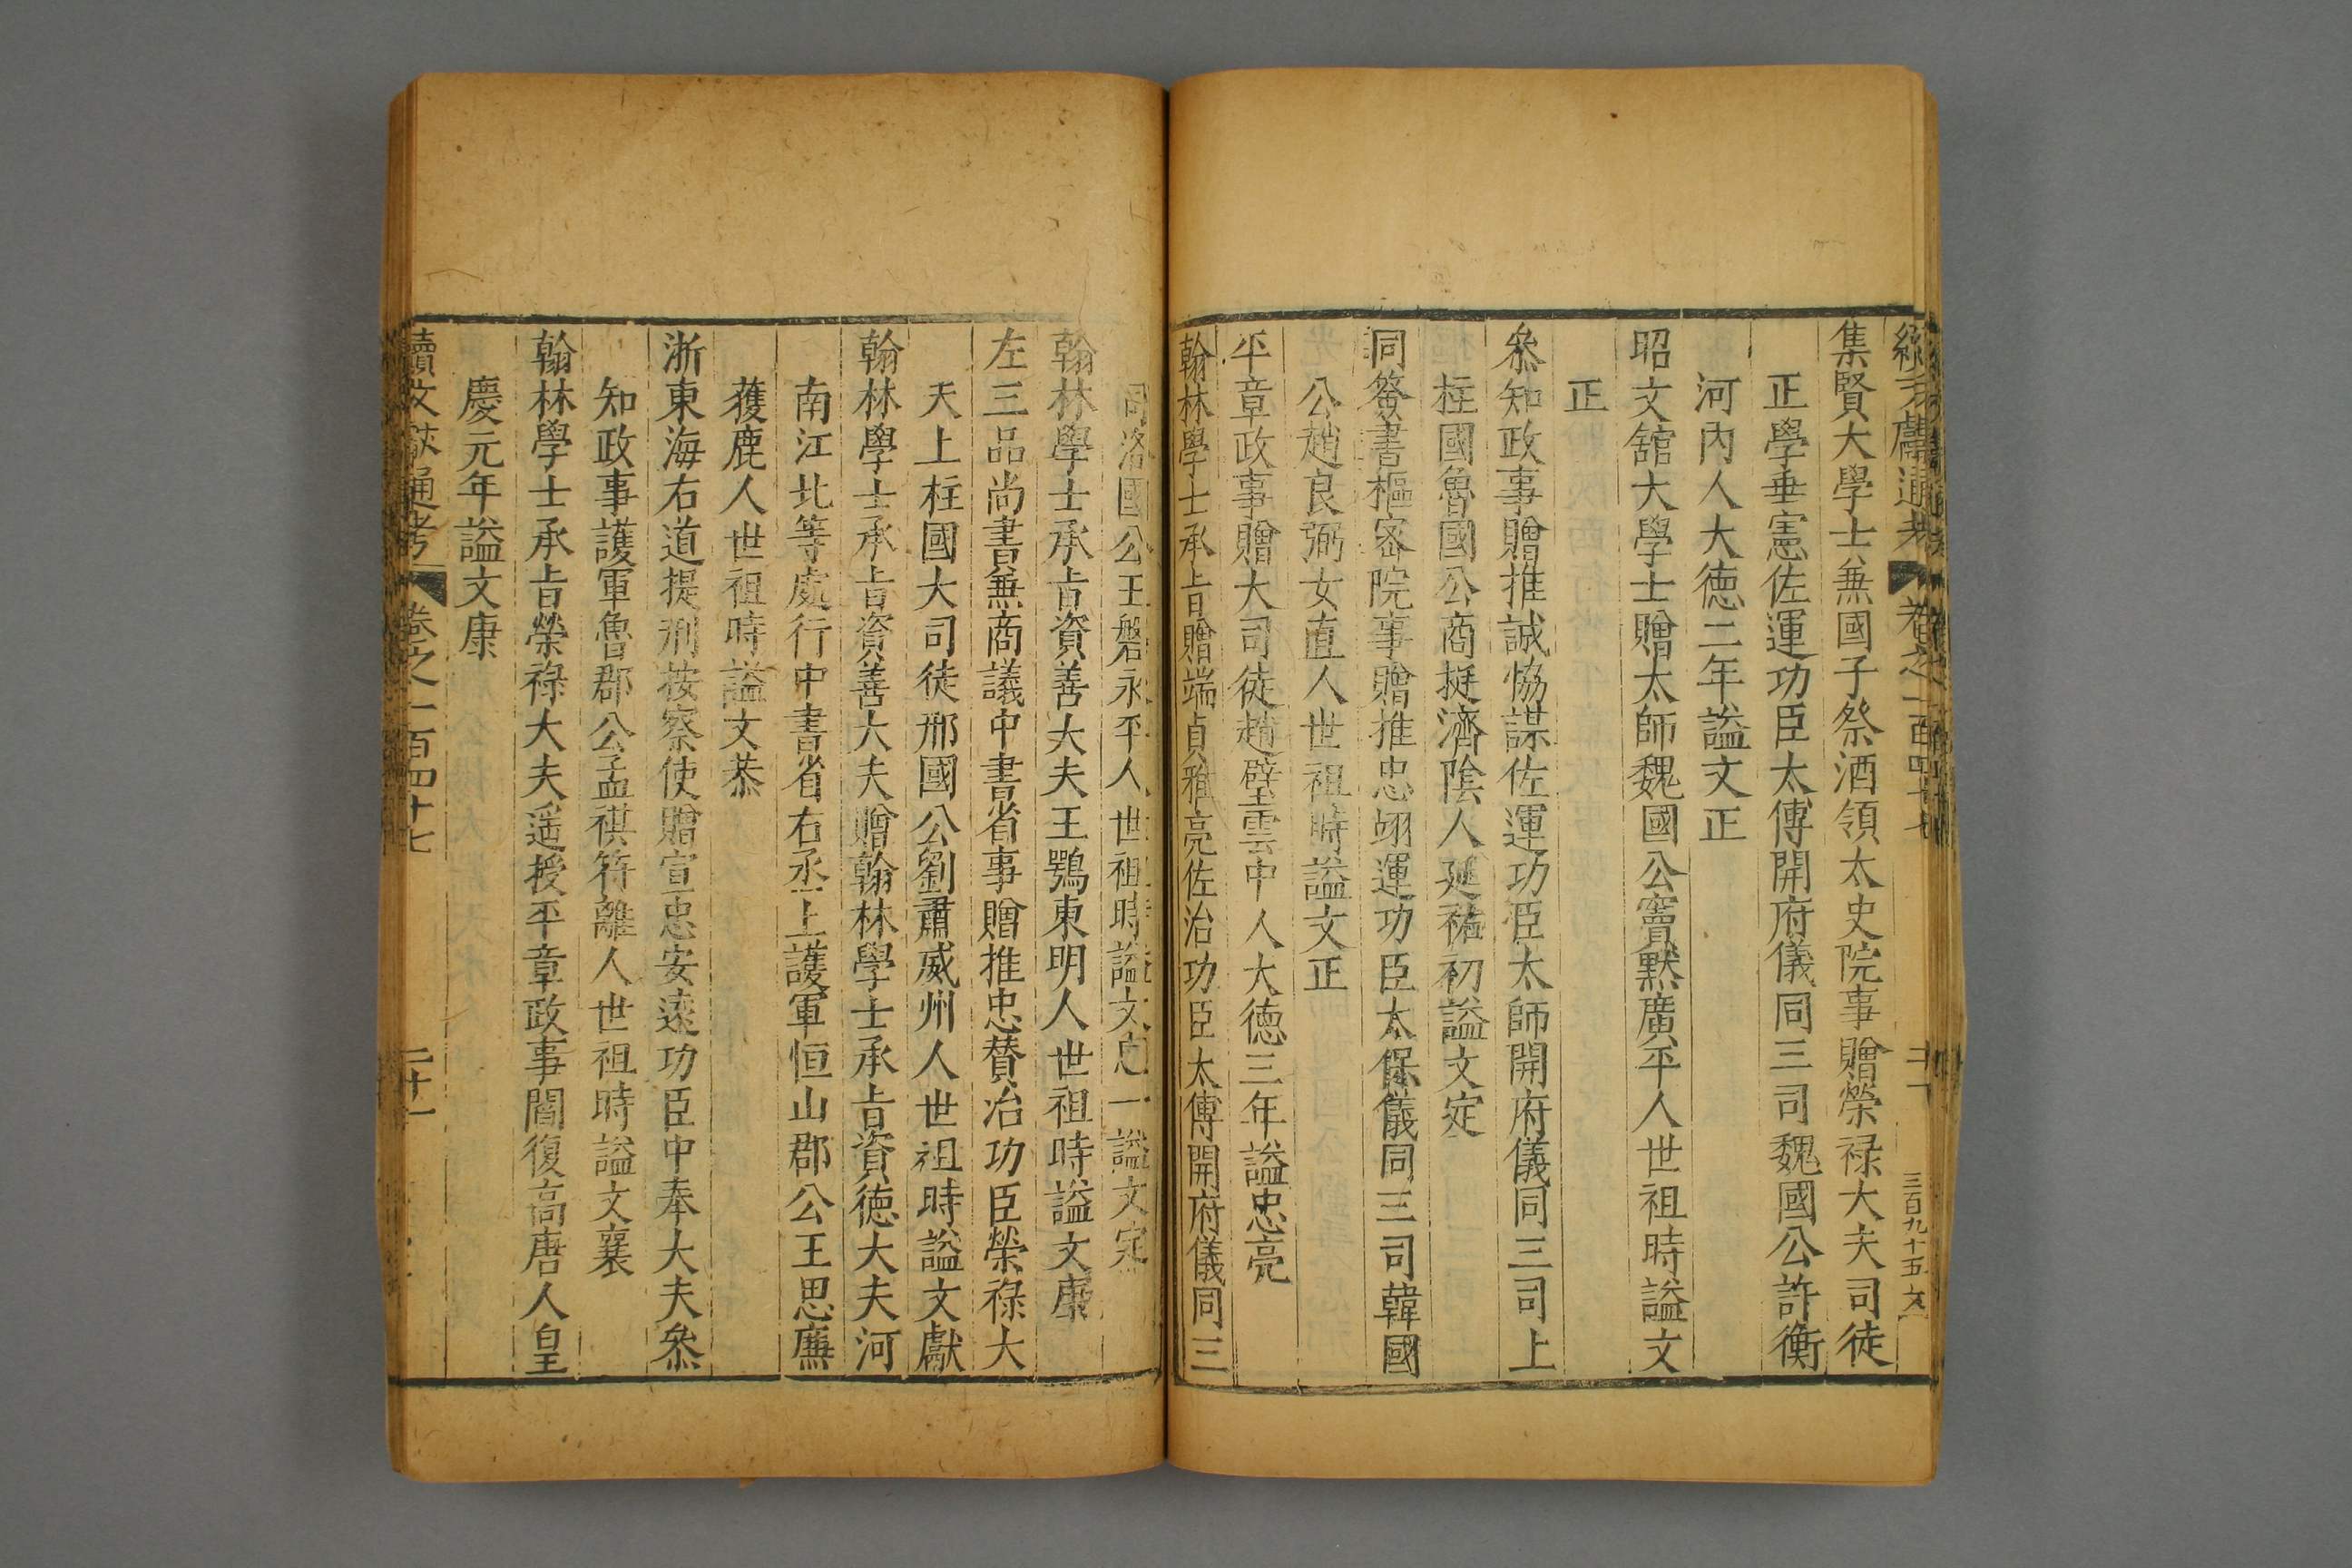 續文獻通考 卷之一百四十七 二十 三百九十五
集賢大學士兼國子祭酒領太史院事贈榮祿大夫司徒
正學垂憲佐運功臣太傅開府儀同三司魏國公許衡
河內人大德二年謚文正
昭文舘大學士贈太師魏國公竇默廣平人世祖時謚文
正
叅知政事贈推誠恊謀佐運功臣太師開府儀同三司上
柱國魯國公商挺濟陰人延祐初謚文定
同簽書樞宻院事贈推忠翊運功臣太保儀同三司韓國
公趙良弼女直人世祖時謚文正
平章政事贈大司徒趙璧雲中人大德三年謚忠亮
翰林學士承旨贈端貞雅亮佐治功臣太傅開府儀同三
司洛國公王磐永平人世祖時謚文忠一謚文定
翰林學士承旨資善大夫王鶚東明人世祖時謚文康
左三品尚書兼商議中書省事贈推忠賛治功臣榮祿大
夫上柱國大司徒邢國公劉肅威州人世祖時謚文獻
翰林學士承旨資善大夫贈翰林學士承旨資德大夫河
南江北等處行中書省右丞上護軍恒山郡公王思廉
獲鹿人世祖時謚文恭
浙東海右道提刑按察使贈宣忠安遠功臣中奉大夫叅
知政事護軍魯郡公孟祺符離人世祖時謚文襄
翰林學士承旨榮祿大夫遥授平章政事閻復高唐人皇
慶元年謚文康
續文獻通考 卷之一百四十七 二十一